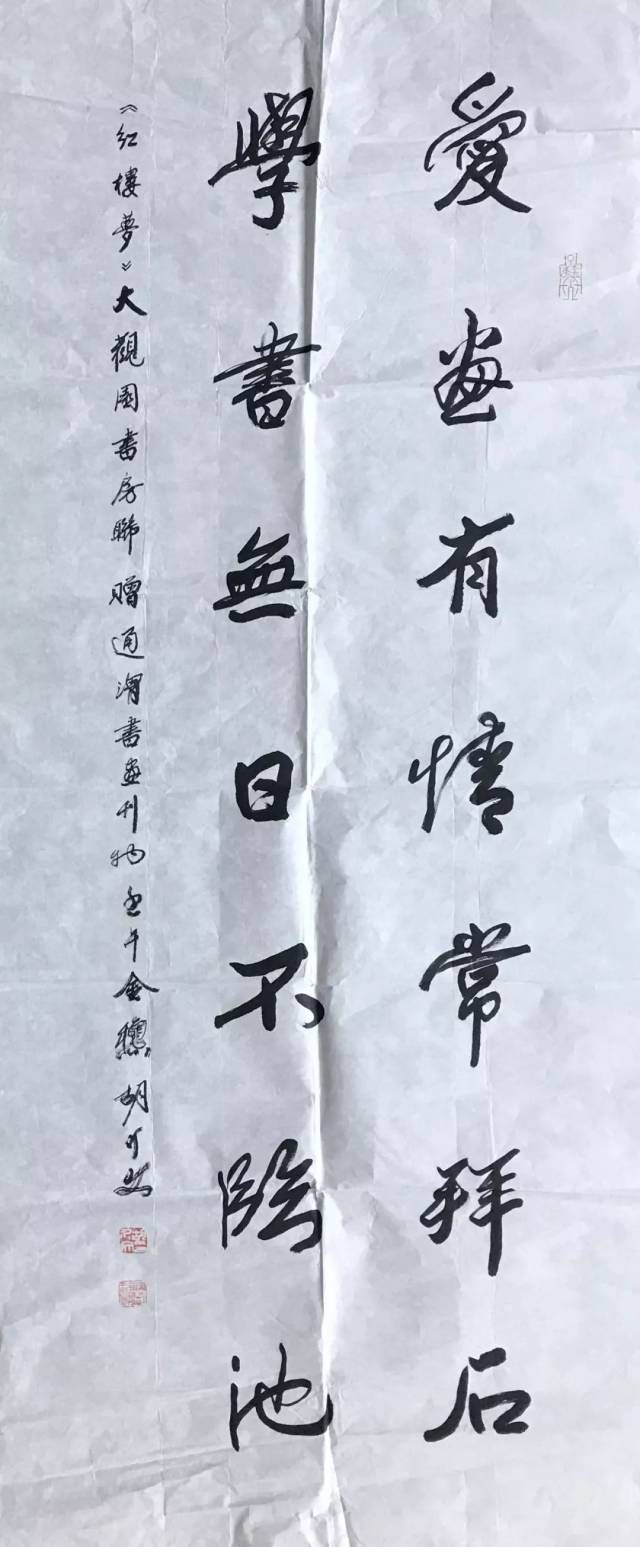 愛畫有情常拜石
學書無日不臨池
《红樓夢》大觀園書房聯 贈通渭書畫刊物 壬午金穐 胡